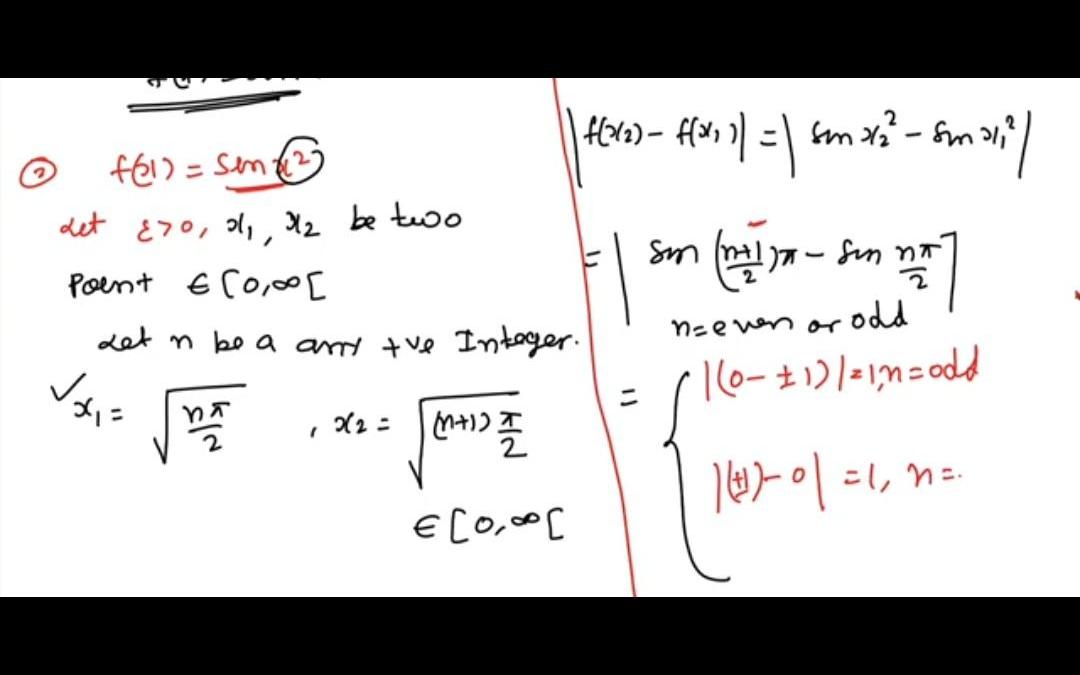 ② f(x) = sin x²
Let ε>0, x₁, x₂ be two
Point ∈ [0,∞[
Let n be a any +ve Integer.
✓x₁ = √(nπ/2) , x₂ = √((n+1)π/2)
∈ [0,∞[
|f(x₂) - f(x₁)| = | sin x₂² - sin x₁² |
= | sin (n+1/2)π - sin nπ/2 |
n = even or odd
= { |(0 - ±1)| = 1, n = odd
|(±1) - 0| = 1, n =